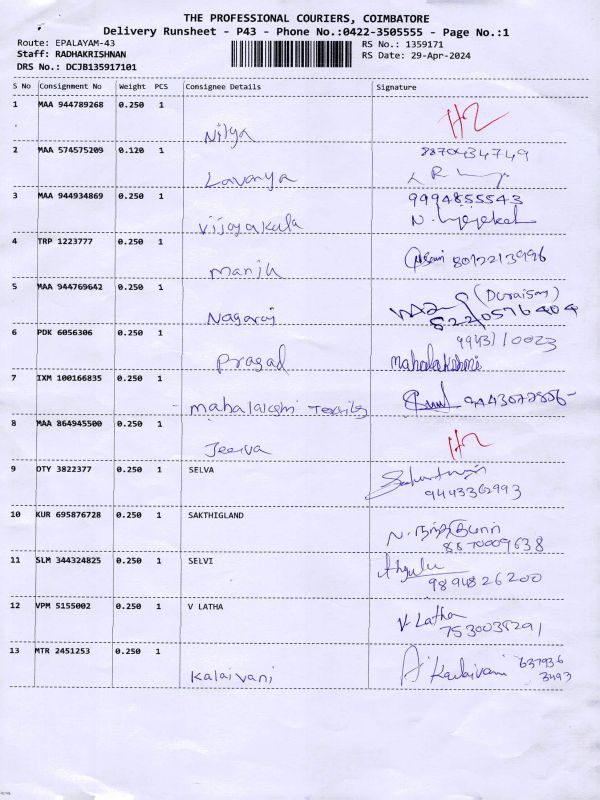 THE PROFESSIONAL COURIERS, COIMBATORE
Delivery Runsheet - P43 - Phone No.:0422-3505555 - Page No.:1
Route: EPALAYAM-43 RS No.: 1359171
Staff: RADHAKRISHNAN RS Date: 29-Apr-2024
DRS No.: DCJB135917101
S No Consignment No Weight PCS Consignee Details Signature
1 MAA 944789268 0.250 1
Nilya H2
2 MAA 574575209 0.120 1 8870434749
Lavanya
3 MAA 944934869 0.250 1 9994855543
Vijayakala
4 TRP 1223777 0.250 1
8012213996
5 MAA 944769642 0.250 1 (Duraisamy)
Nagaraj 8220576404
6 PDK 6056306 0.250 1 9943110023
Prasad Mahalakshmi
7 IXM 100166835 0.250 1
Mahalakshmi
8 MAA 864945500 0.250 1 H2
Jeeva
9 OTY 3822377 0.250 1 SELVA
9443362993
10 KUR 695876728 0.250 1 SAKTHIGLAND
8870009638
11 SLM 344324825 0.250 1 SELVI
9894826200
12 VPM 5155002 0.250 1 V LATHA V Latha
7530038291
13 MTR 2451253 0.250 1 637936
Kalaivani A. Kalaivani 3493